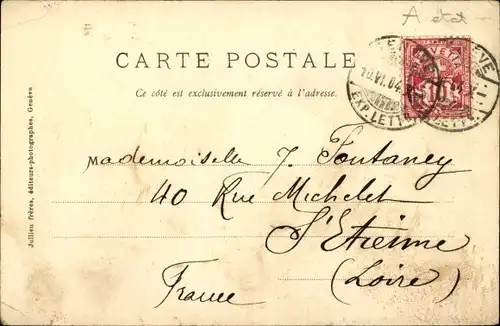 A etat
CARTE POSTALE
Ce côté est exclusivement réservé à l'adresse.
HELVETIA
10
10.VI.04
EXP. LETTR.
Mademoiselle J. Fontaney
40 Rue Michelet
S'Etienne
(Loire)
France
Jullien frères, éditeurs-photographes, Genève